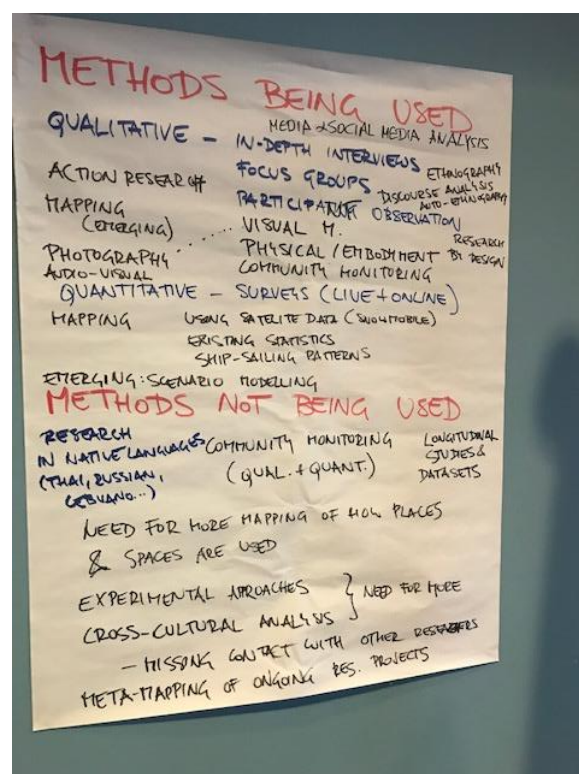 METHODS BEING USED
MEDIA & SOCIAL MEDIA ANALYSIS
QUALITATIVE – IN-DEPTH INTERVIEWS
ETHNOGRAPHY
ACTION RESEARCH
FOCUS GROUPS
DISCOURSE ANALYSIS
AUTO-ETHNOGRAPHY
MAPPING
(EMERGING)
PARTICIPANT OBSERVATION
..... VISUAL M.
RESEARCH
BY DESIGN
PHOTOGRAPHY
AUDIO-VISUAL
PHYSICAL / EMBODIMENT
COMMUNITY MONITORING
QUANTITATIVE – SURVEYS (LIVE + ONLINE)
MAPPING USING SATELITE DATA (SNOWMOBILE)
EXISTING STATISTICS
SHIP-SAILING PATTERNS
EMERGING: SCENARIO MODELLING
METHODS NOT BEING USED
RESEARCH
IN NATIVE LANGUAGES
(THAI, RUSSIAN,
CEBUANO...)
COMMUNITY MONITORING
(QUAL. + QUANT.)
LONGITUDINAL
STUDIES &
DATASETS
NEED FOR MORE MAPPING OF HOW PLACES
& SPACES ARE USED
EXPERIMENTAL APROACHES
CROSS-CULTURAL ANALYSIS } NEED FOR MORE
– MISSING CONTACT WITH OTHER RESEARCHERS
META-MAPPING OF ONGOING RES. PROJECTS